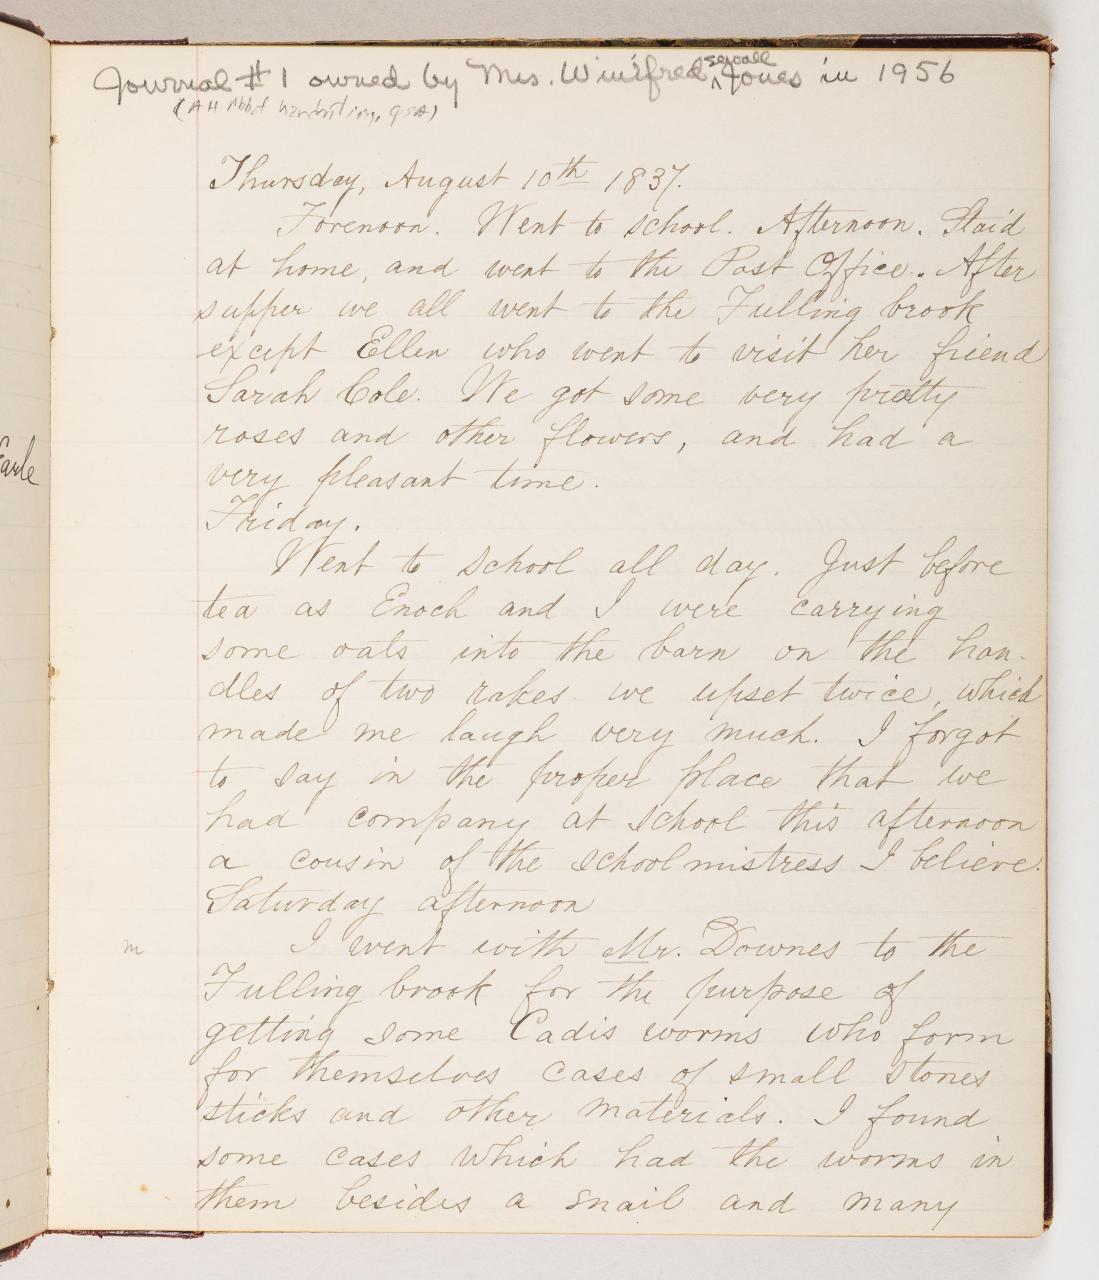 Earle
Journal #1 owned by Mrs. Winifred ^ Sewall Jones in 1956
(A H Abbot handwriting, GSA)
Thursday, August 10th 1837.
Forenoon. Went to school. Afternoon. Staid
at home, and went to the Post Office. After
supper we all went to the Fulling brook
except Ellen who went to visit her friend
Sarah Cole. We got some very pretty
roses and other flowers, and had a
very pleasant time.
Friday.
Went to school all day. Just before
tea as Enoch and I were carrying
some oats into the barn on the han-
dles of two rakes we upset twice, which
made me laugh very much. I forgot
to say in the proper place that we
had company at school this afternoon
a cousin of the schoolmistress I believe.
Saturday afternoon
I went with Mr. Downes to the
m
Fulling brook for the purpose of
getting some Cadis worms who form
for themselves cases of small stones
sticks and other materials. I found
some cases which had the worms in
them besides a snail and many